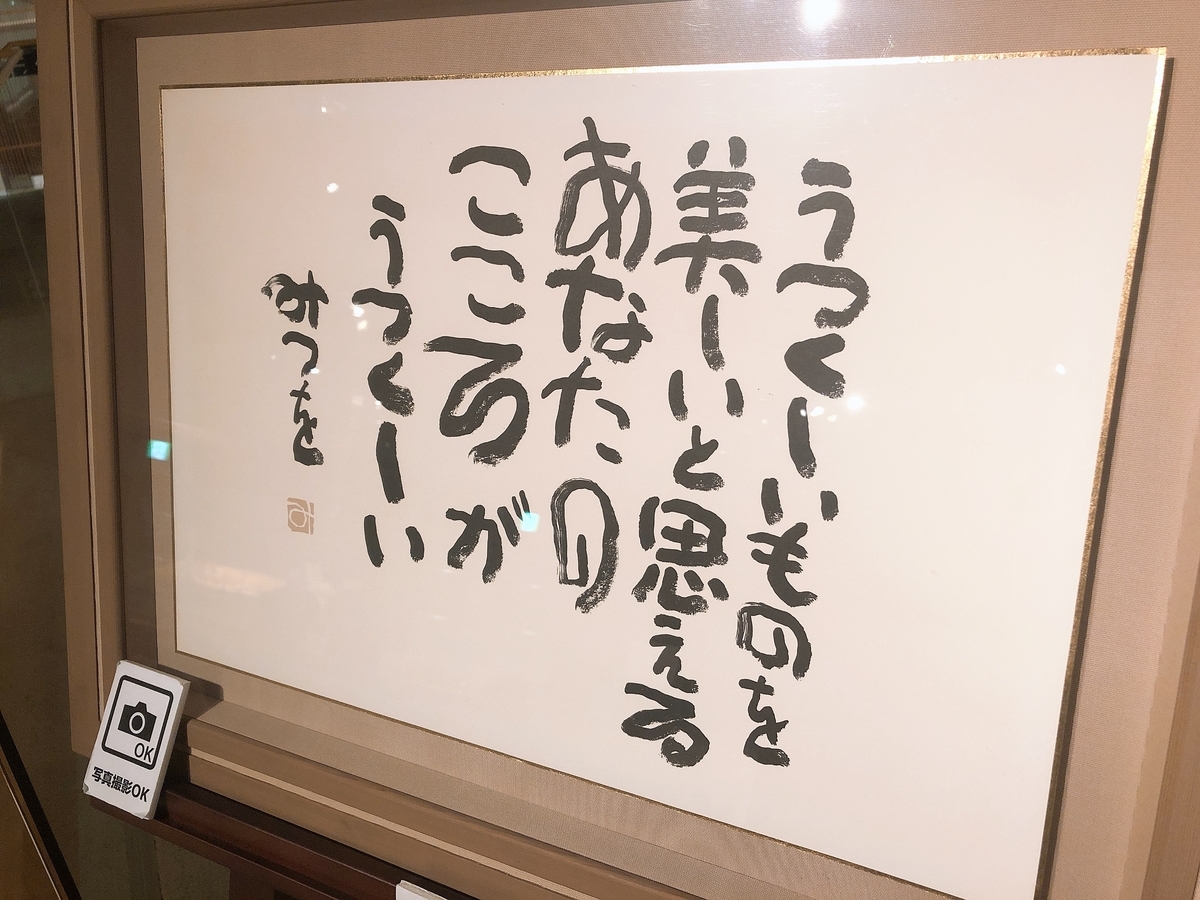 うつくしいものを
美しいと思える
あなたの
こころが
うつくしい
みつを
み
OK
写真撮影OK